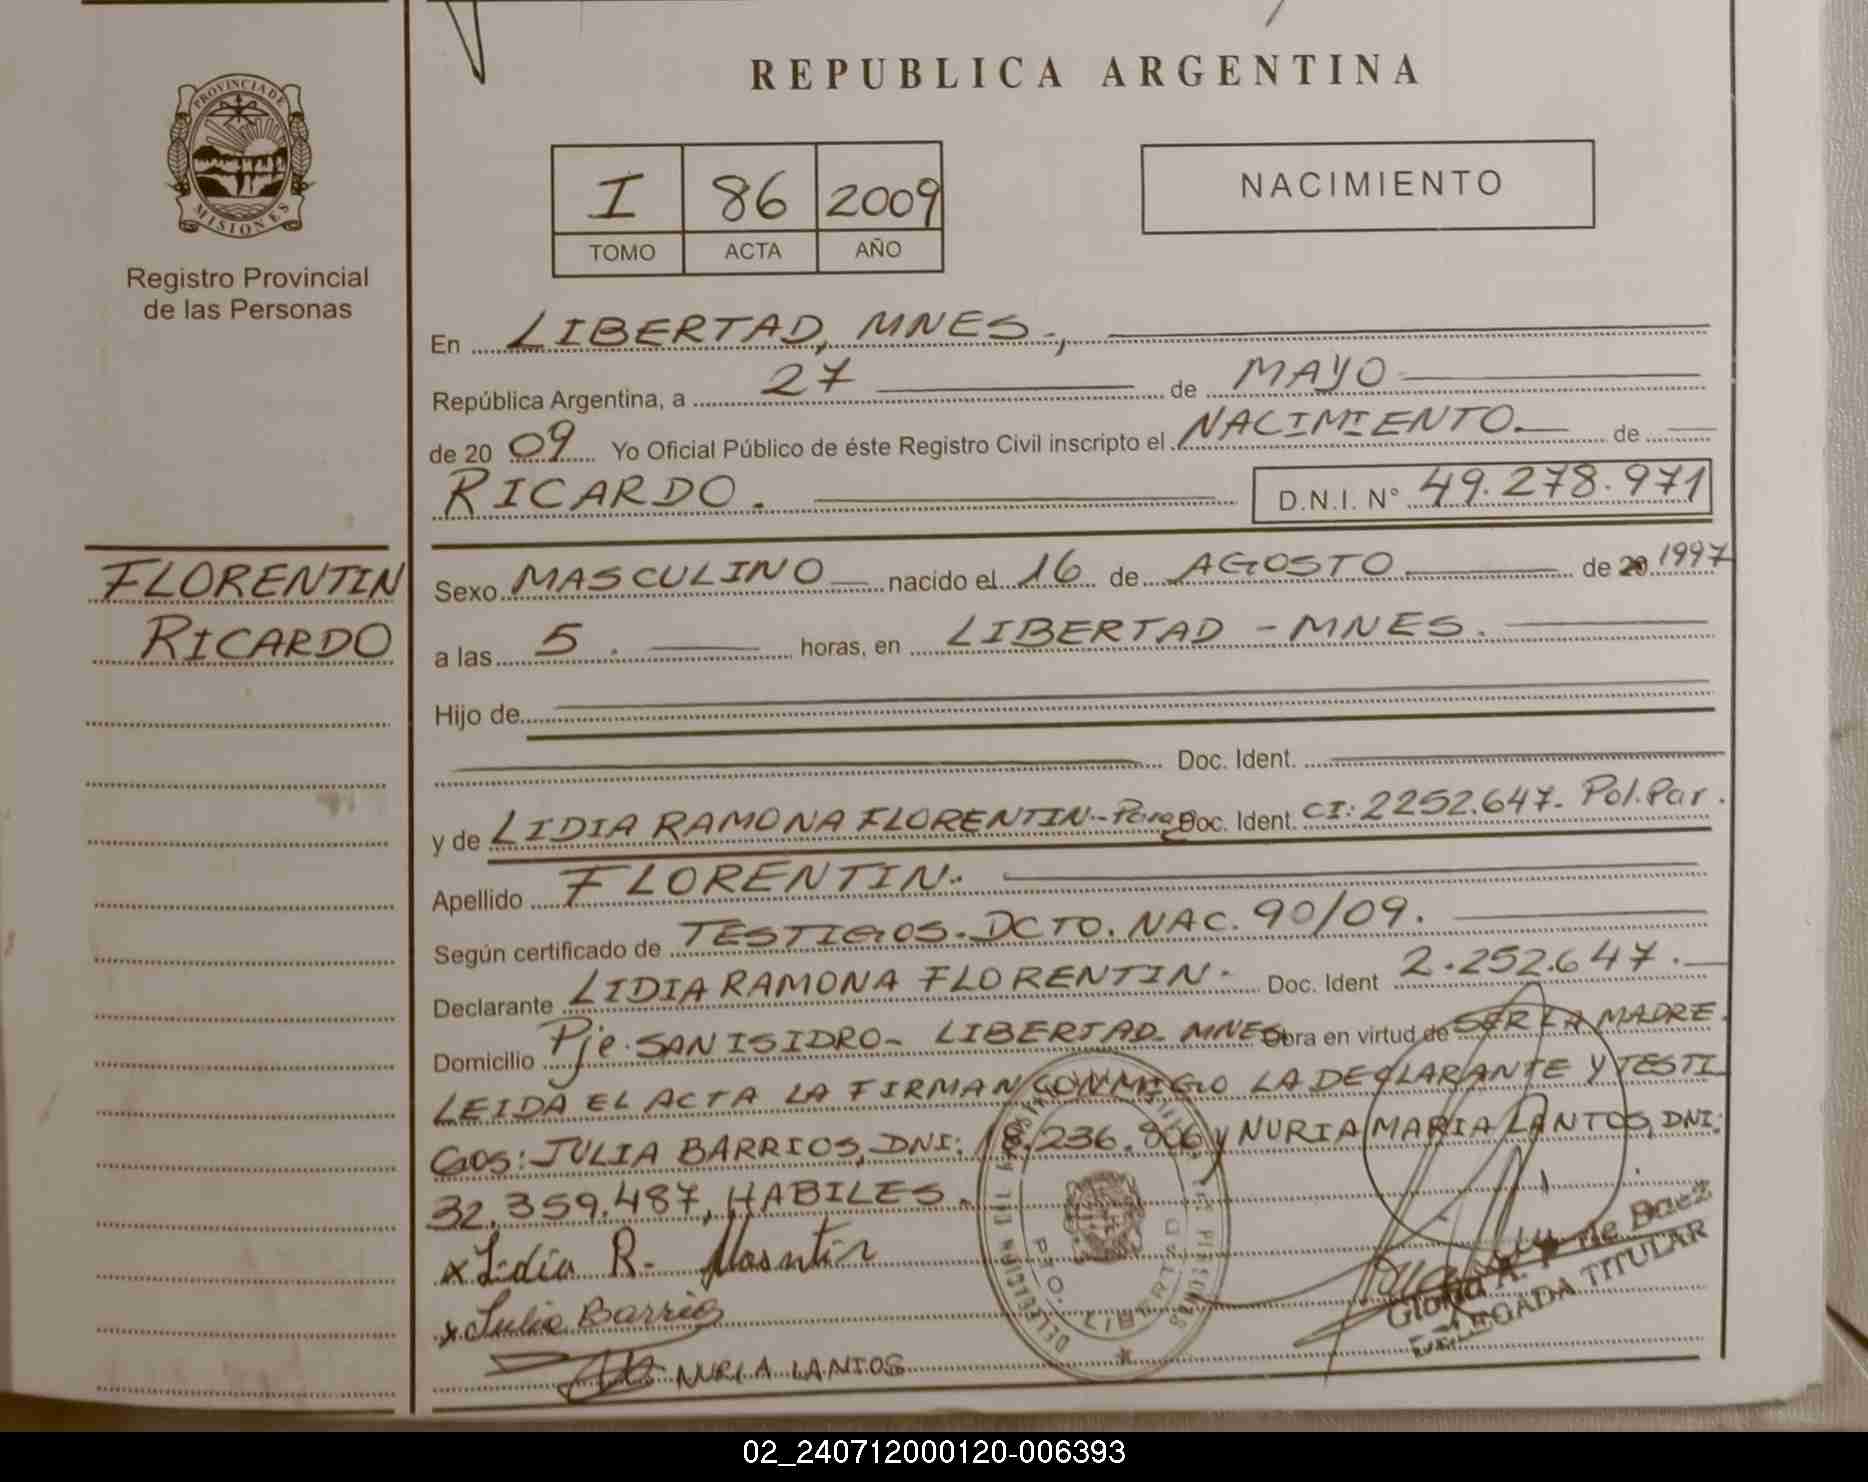 REPUBLICA ARGENTINA
PROVINCIA DE
MISIONES
Registro Provincial
de las Personas
I 86 2009
TOMO ACTA AÑO
NACIMIENTO
En LIBERTAD, MNES.,
República Argentina, a 27 de MAYO
de 2009 Yo Oficial Público de éste Registro Civil inscripto el NACIMIENTO. de
RICARDO. D.N.I. Nº 49.278.971
FLORENTIN
RICARDO
Sexo MASCULINO nacido el 16 de AGOSTO de 20 1997
a las 5. horas, en LIBERTAD - MNES.
Hijo de
Doc. Ident.
y de LIDIA RAMONA FLORENTIN - Parag Doc. Ident. CI: 2252.647. Pol. Par.
Apellido FLORENTIN.
Según certificado de TESTIGOS. DCTO. NAC. 90/09.
Declarante LIDIA RAMONA FLORENTIN. Doc. Ident 2.252.647.
Domicilio Pje. SAN ISIDRO - LIBERTAD - MNES Obra en virtud de SER LA MADRE.
LEIDA EL ACTA LA FIRMAN CONMIGO LA DECLARANTE Y TESTI
GOS: JULIA BARRIOS, DNI: 18.236.806 y NURIA MARIA LANTOS, DNI:
32.359.487, HABILES.
x Lidia R.
x Julia Barrios
NURIA LANTOS
PTO. LIBERTAD
de Baez
DELEGADA TITULAR
02_240712000120-006393